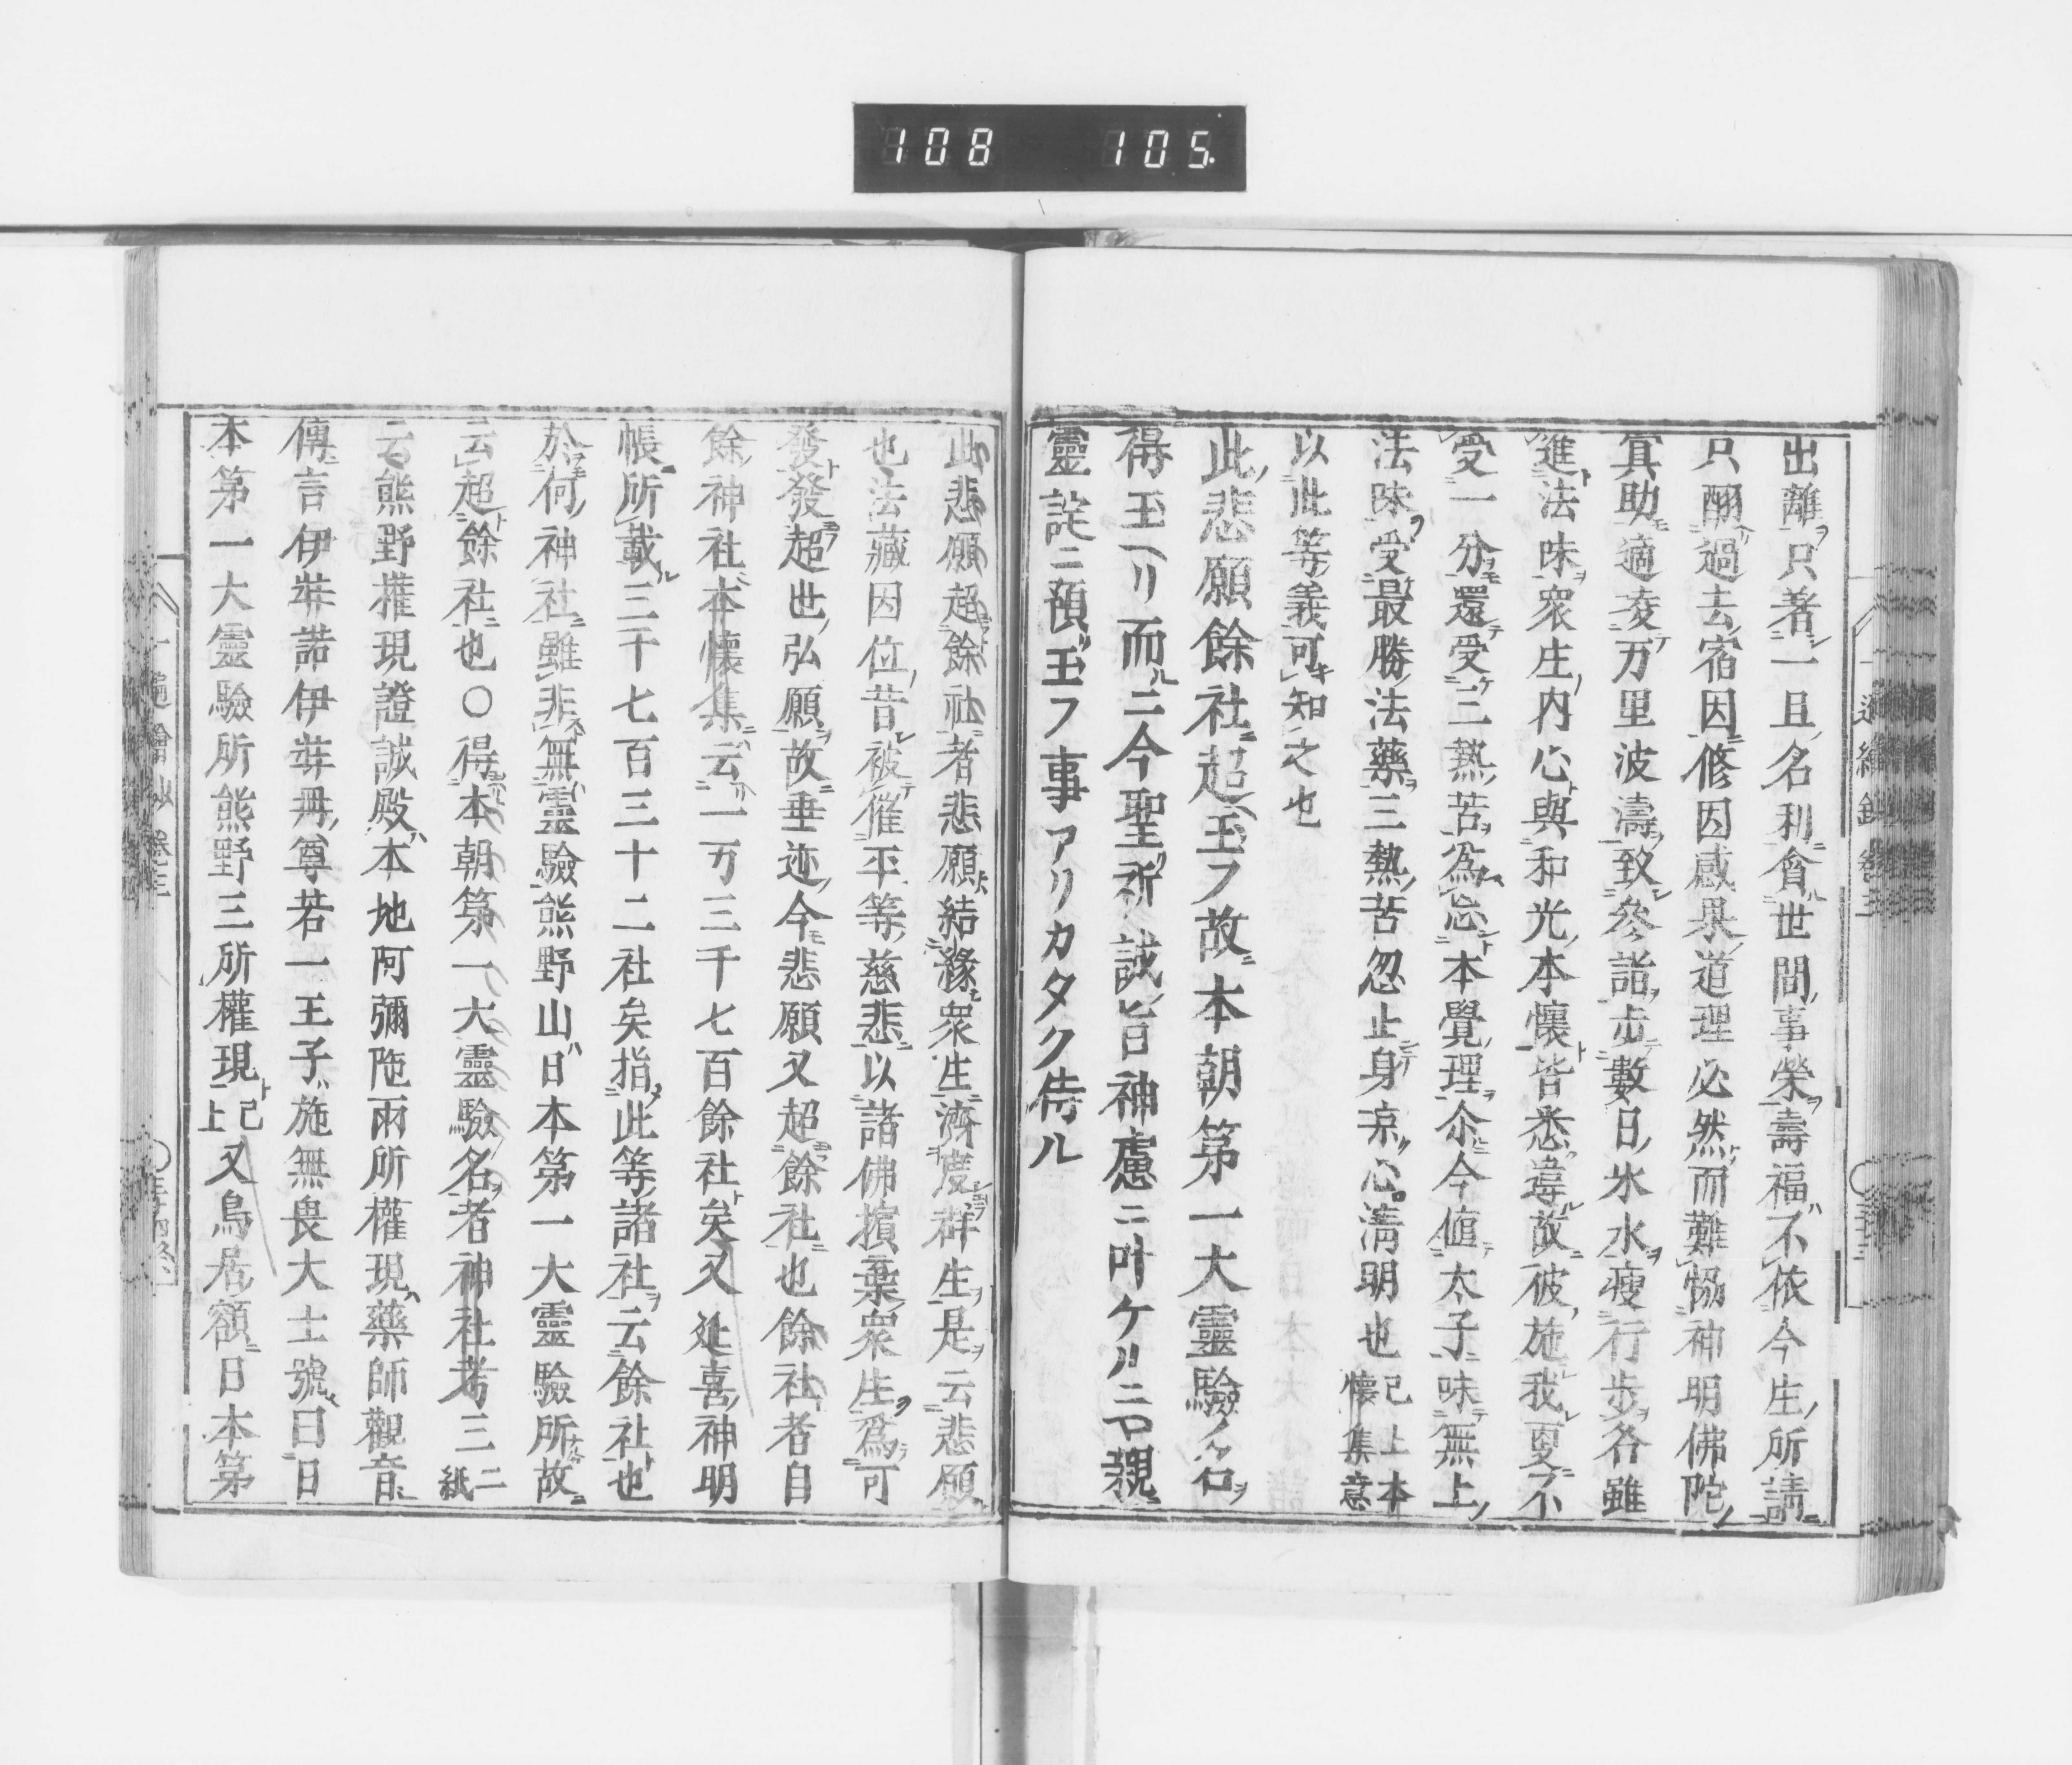 108 105
出離只著一旦名利貪世間事榮壽福不依今生所請
只酬過去宿因修因感果道理必然而難恊神明佛陀
冥助適凌万里波濤致參詣步數日氷水瘦行步各雖
進法味衆庄内心與和光本懷皆悉違故彼施我更不
受一分還受三熱苦為忘本覺理尒今値太子味無上
法味受最勝法藥三熱苦忽止身凉心清明也已上本懷集意
以此等義可知之也
此悲願餘社超玉フ故本朝第一大靈驗ノ名
得玉ヘリ而ルニ今聖祈誠旨神慮ニ叶ケルニヤ親
靈託ニ預玉フ事アリカタク侍ル
此悲願超餘社者悲願結縁衆生濟度群生是云悲願
也法藏因位昔被催平等慈悲以諸佛擯棄衆生爲可
發發超世弘願故垂迹今悲願又超餘社也餘社者自
餘神社本懷集云一万三千七百餘社矣又延喜神明
帳所載三千七百三十二社矣指此等諸社云餘社也
於何神社雖非無靈驗熊野山日本第一大靈驗所故
云超餘社也○得本朝第一大靈驗名者神社考三二紙
云熊野權現證誠殿本地阿彌陁兩所權現藥師觀音
傳言伊弉諾伊弉冊尊若一王子施無畏大士號曰日
本第一大靈驗所熊野三所權現已上又鳥居額日本第